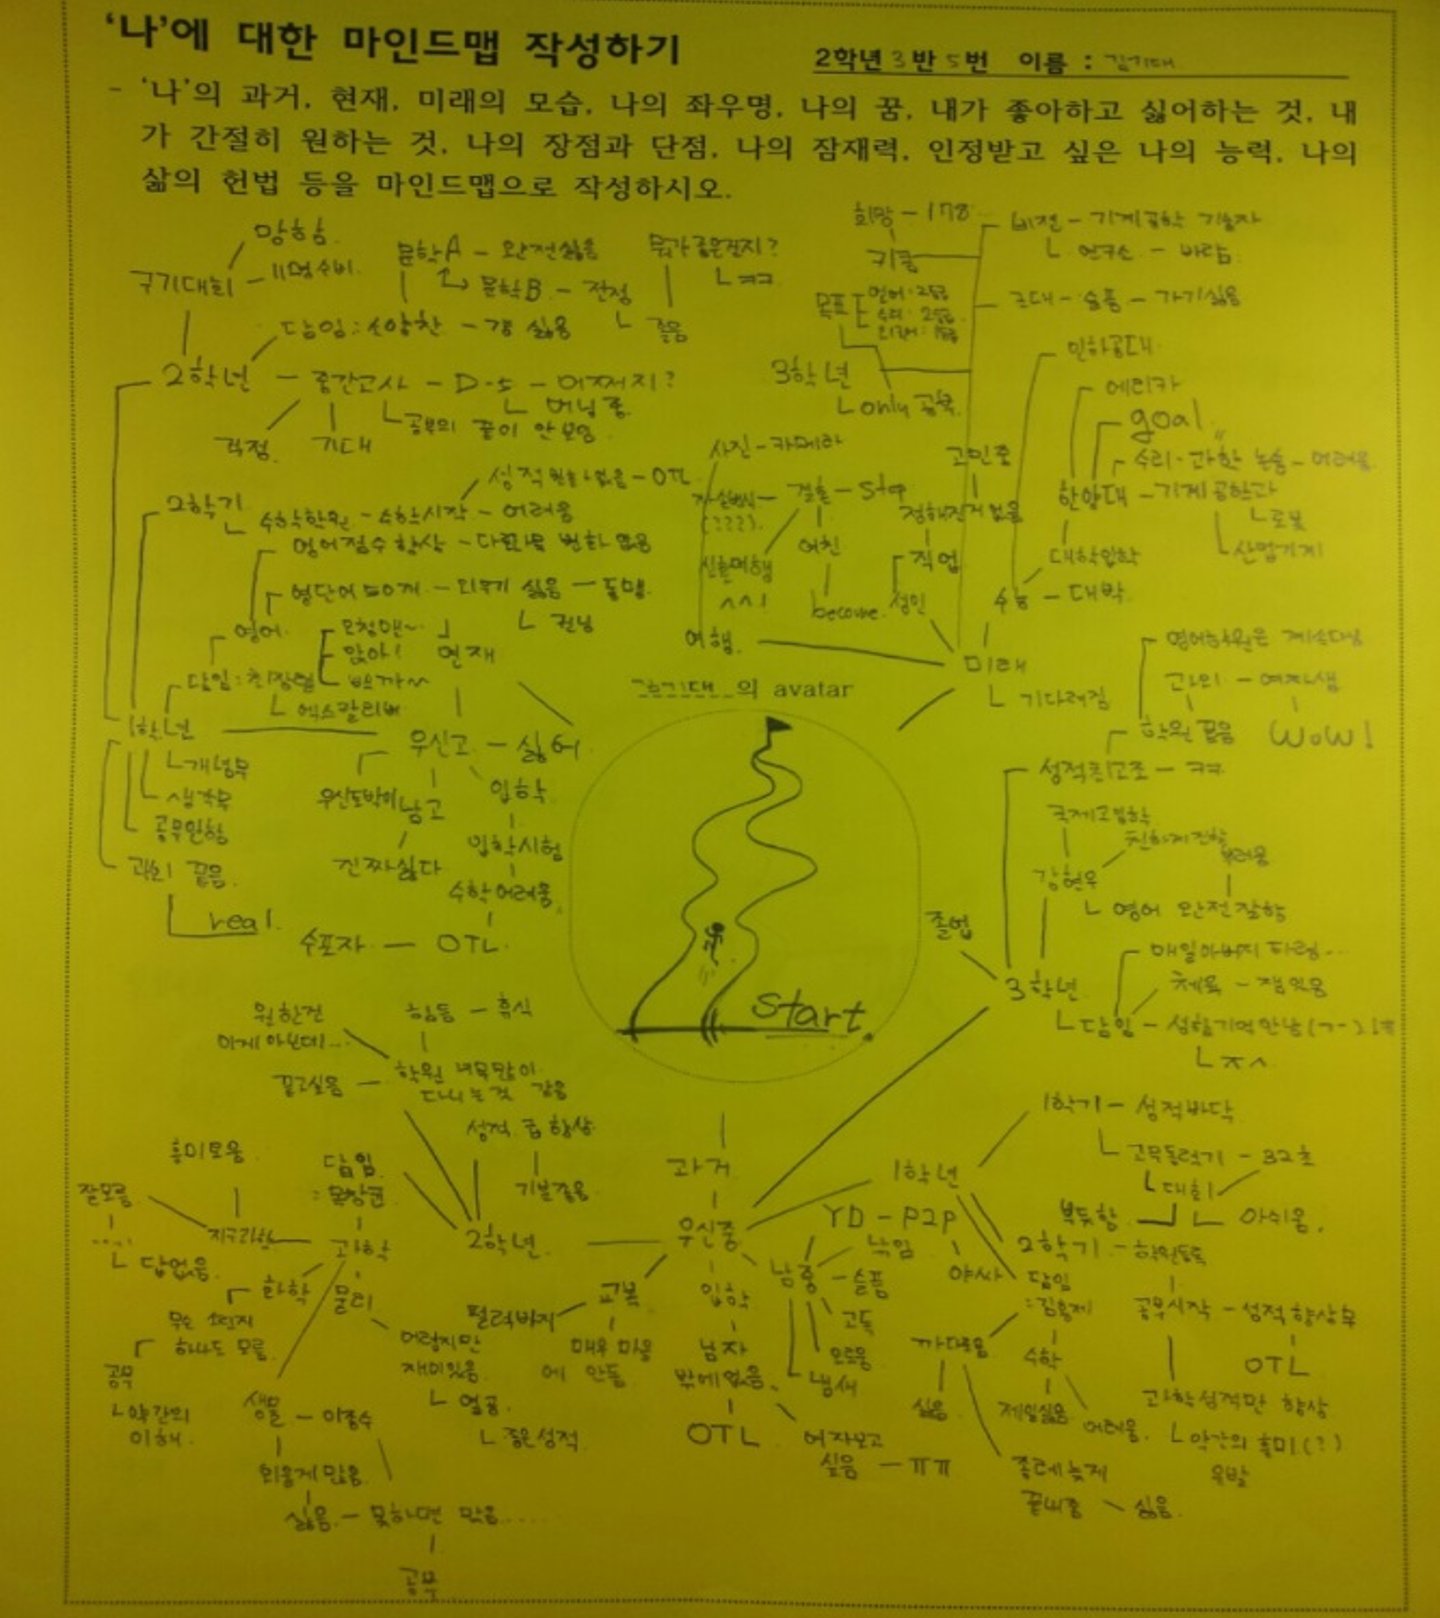 '나'에 대한 마인드맵 작성하기
2학년 3반 5번 이름 : 김기대
- '나'의 과거, 현재, 미래의 모습, 나의 좌우명, 나의 꿈, 내가 좋아하고 싫어하는 것, 내
가 간절히 원하는 것, 나의 장점과 단점, 나의 잠재력, 인정받고 싶은 나의 능력, 나의
삶의 헌법 등을 마인드맵으로 작성하시오.
망함
구기대회 - 11명수비
문학A - 완전싫음
문학B - 전정
좋음
ㅋㅋ
담임 :
2학년 - 중간고사 - D-5 - 어쩌지?
버닝중
공부의 끝이 안보임
걱정
기대
2학기
성적변화없음 - OTL
수학학원 - 수학시작 - 어려움
영어점수 향상
영단어 50개 - 외우기 싫음
영어
맞아!
현재
담임 :
엑스칼리버
1학년
개념무
생각무
공부안함
과외 끝음
real
우신고 - 싫어
남고
진짜싫다
입학
입학시험
수학어려움
수포자 - OTL
희망 - 178
키큼
비전 - 기계공학 기술자
연구소 - 바람
군대 - 슬픔 - 가기싫음
목표
영어 : 2등급
수리 : 2등급
외국어 : 1등급
3학년
only 공부
인하공대
에리카
goal
수리·과학 논술 - 어려움
한양대 - 기계공학과
로봇
산업기계
대학입학
수능 - 대박
사진 - 카메라
결혼 - stop
(???)
신혼여행
^^!
여친
become
고민중
정해진거 없음
직업
성인
여행
미래
기다려짐
의 avatar
start.
영어학원은 계속다님
과외 - 여자샘
WOW!
학원 끊음
성적최고조 - ㅋㅋ
강현우
부러움
영어 완전잘함
졸업
3학년
매일아버지 타령...
체육 - 잼있음
담임
ㅈㅅ
원한건
이게 아닌데...
힘듬 - 휴식
학원 너무많이
다니는것 같음
끊고싶음
성적 급 향상
기분좋음
흥미로움
잘모름
지구과학
답없음
담임
과학
2학년
화학
물리
무슨 소린지
하나도 모름
공부
약간의
이해
어렵지만
재미있음
열공
좋은성적
생물 - 이종수
외울게 많음
싫음 - 못하면 맞음....
공부
과거
우신중
교복
펄럭바지
매우 마음
에 안듬
입학
남자
밖에없음
OTL
여자보고
싶음 - ㅠㅠ
남중 - 슬픔
고독
외로움
냄새
YD - P2P
낚임
야싸
1학년
1학기 - 성적바닥
고무동력기 - 32초
대회
뿌듯함
아쉬움
2학기 - 학원등록
담임
: 김용제
까다로움
싫음
수학
제일싫음
어려움
종례늦게
끝내줌 - 싫음
공부시작 - 성적 향상무
OTL
과학성적만 향상
약간의 흥미(?)
유발